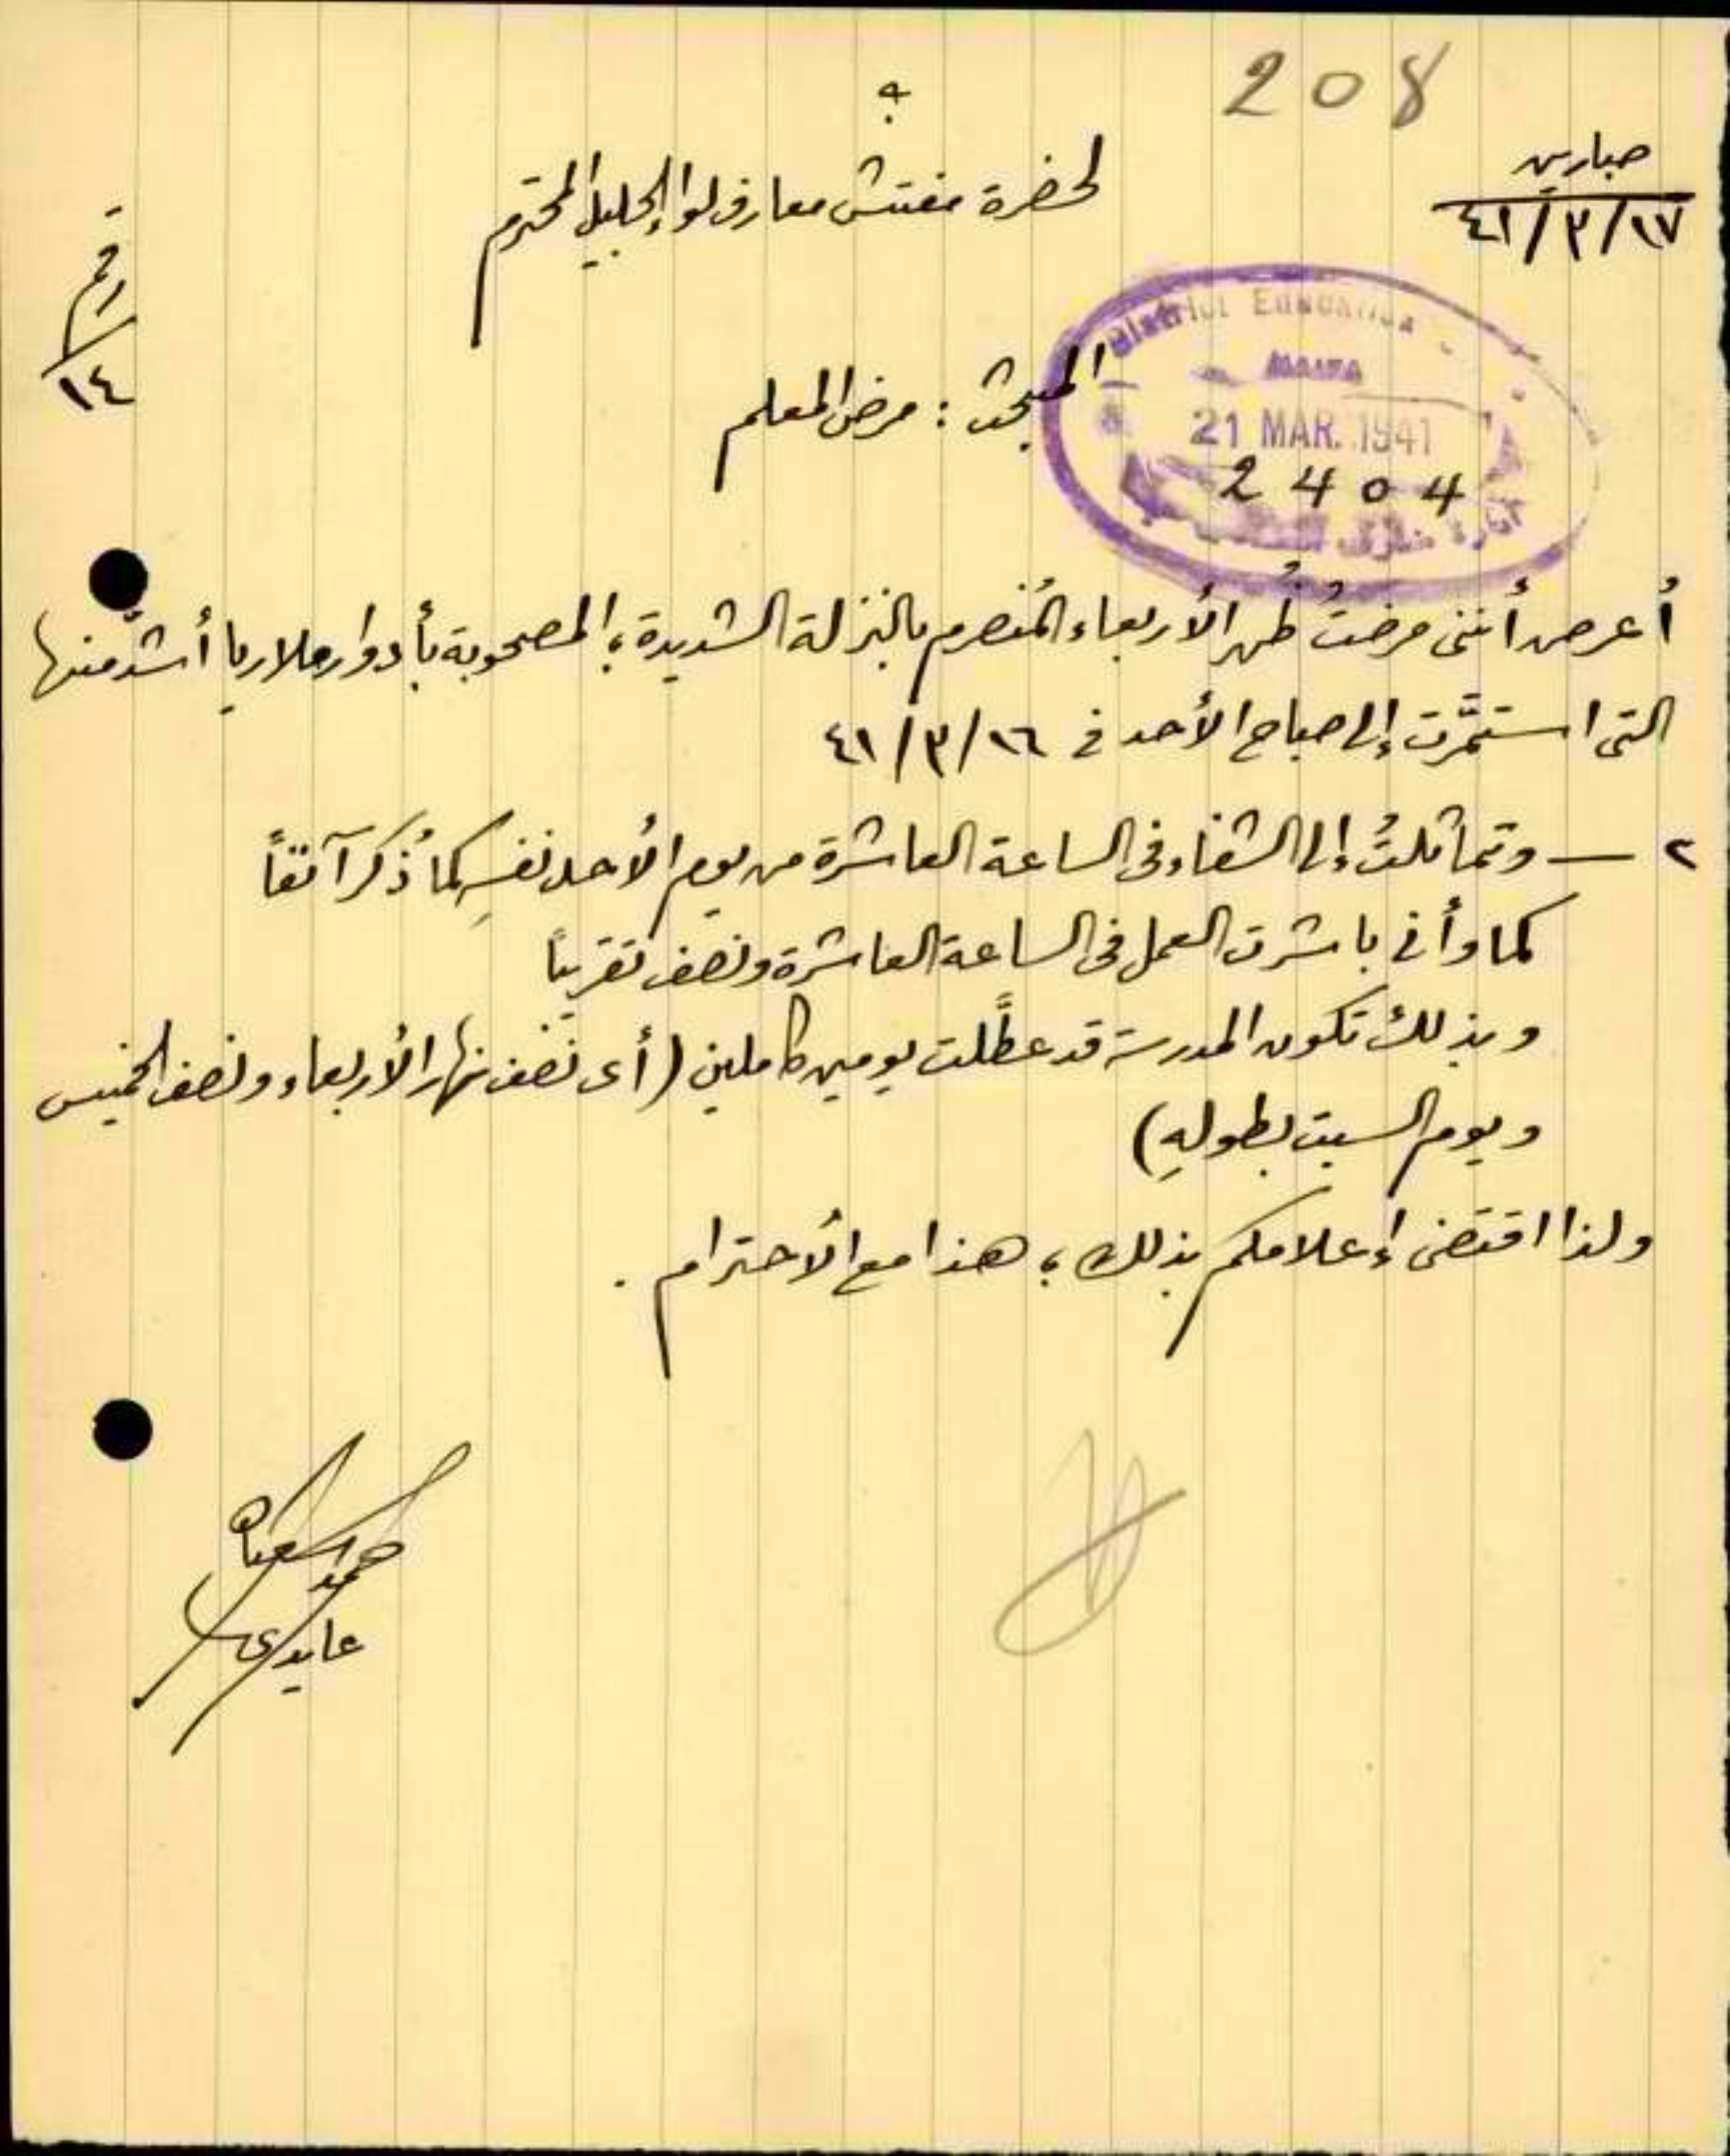 208
صبارين
١٧/٣/٤١
لحضرة مفتش معارف لواء الجليل المحترم
رقم
١٤
District Education
HAIFA
21 MAR. 1941
2404
المبحث : مرض المعلم
أعرض أنني مرضتُ ظُهر الأربعاء المُنصرم بالنزلة الشديدة، المصحوبة بأدوار ملاريا أشدّ منها
التي استمَّرت إلى صباح الأحد في ١٦/٣/٤١
٢ — وتماثلتُ إلى الشفاء في الساعة العاشرة من يوم الأحد نفسهِ كما ذُكر آنفاً
كما وأني باشرت العمل في الساعة العاشرة ونصف تقريباً
وبذلك تكون المدرسة قد عطَّلت يومين كاملين (أي نصف نهار الأربعاء ونصف الخميس
ويوم السبت بطولهِ)
ولذا اقتضى إعلامكم بذلك، هذا مع الأحترام .
محمد سعيد
عابدي